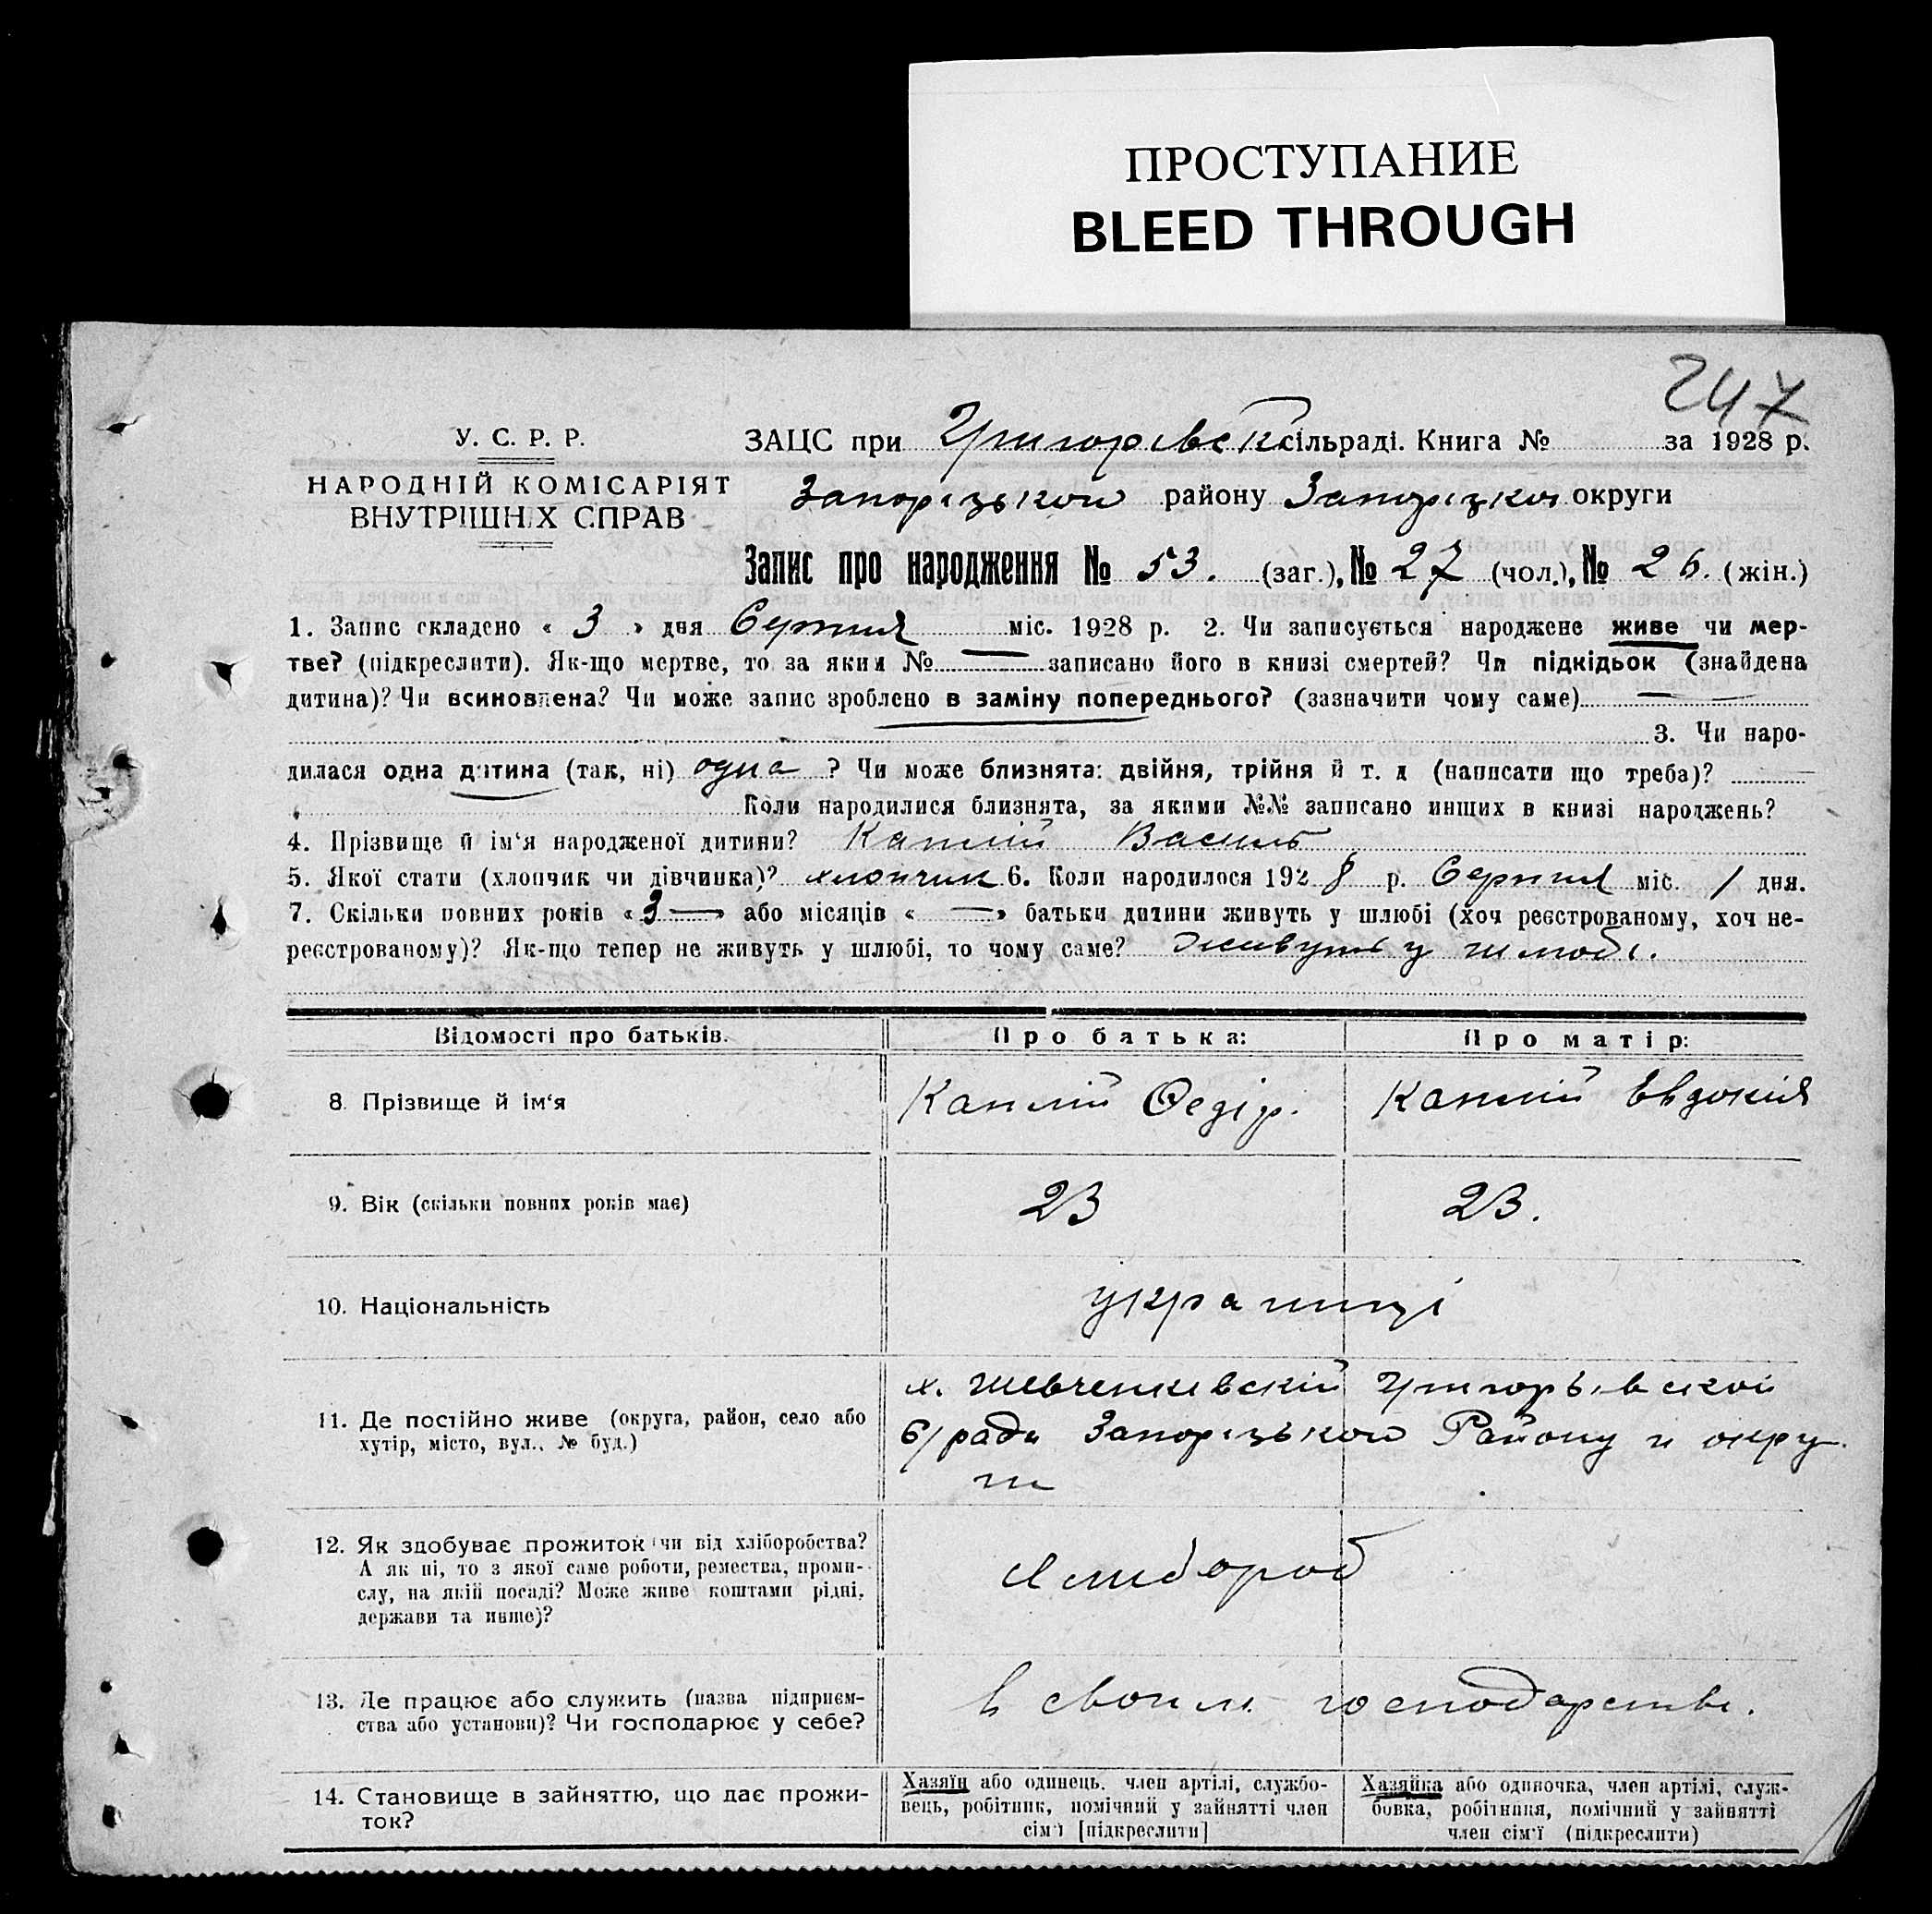 ПРОСТУПАНИЕ
BLEED THROUGH
247
У. С. Р. Р.
НАРОДНІЙ КОМІСАРІЯТ
ВНУТРІШНІХ СПРАВ
ЗАЦС при Григорівск сільраді. Книга № за 1928 р.
Запорізькои району Запорізкои округи
Запис про народження № 53. (заг.), № 27 (чол.), № 26. (жін.)
1. Запис складено « 3 » дня Серпня міс. 1928 р. 2. Чи записується народжене живе чи мер-
тве? (підкреслити). Як-що мертве, то за яким № — записано його в книзі смертей? Чи підкідьок (знайдена
дитина)? Чи всиновлена? Чи може запис зроблено в заміну попереднього? (зазначити чому саме) — —
3. Чи наро-
дилася одна дитина (так, ні) одна ? Чи може близнята: двійня, трійня й т. д (написати що треба)? —
Коли народилися близнята, за якими №№ записано инших в книзі народжень?
4. Прізвище й ім‘я народженої дитини? Каплій Василь
5. Якої стати (хлопчик чи дівчинка)? хлопчик 6. Коли народилося 1928 р. Серпня міс. 1 дня.
7. Скільки повних років « 3 — » або місяців « — » батьки дитини живуть у шлюбі (хоч реєстрованому, хоч не-
реєстрованому)? Як-що тепер не живуть у шлюбі, то чому саме? живуть у шлюбі.
Відомості про батьків. Про батька: Про матір:
8. Прізвище й ім‘я Каплій Федір. Каплій Евдокія
9. Вік (скільки повних років має) 23 23.
10. Національність украинці
11. Де постійно живе (округа, район, село або
хутір, місто, вул., № буд.)
х. Шевченкивскій Григорьівской
С/ради Запорізькои Району и окру
ги
12. Як здобуває прожиток (чи від хліборобства?
А як ні, то з якої саме роботи, ремества, проми-
слу, на якій посаді? Може живе коштами рідні,
держави та инше)?
Хлибороб
13. Де працює або служить (назва підприєм-
ства або установи)? Чи господарює у себе?
в своим господарстві.
14. Становище в зайняттю, що дає прожи-
ток?
Хазяїн або одинець, член артілі, службо-
вець, робітник, помічний у зайнятті член
сім‘ї [підкреслити]
Хазяйка або одиночка, член артілі, служ-
бовка, робітниця, помічний у зайнятті
член сім‘ї (підкреслити)